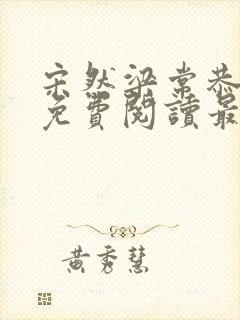 宋然梁常恭
免費閱讀最
黃秀慧